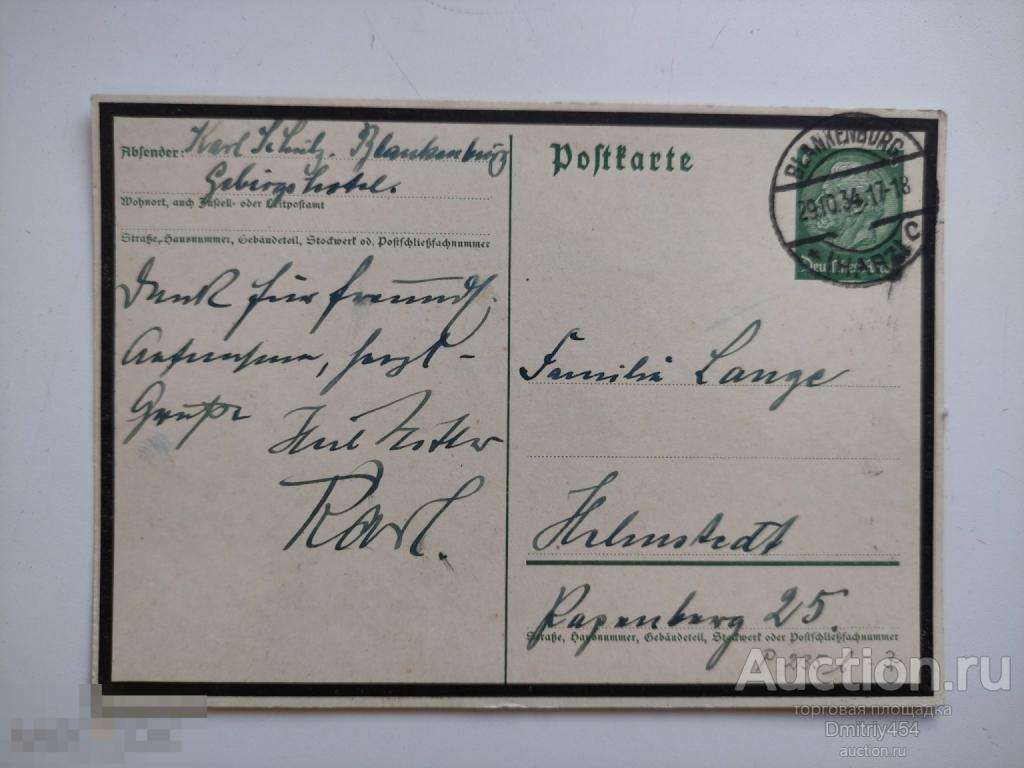 Absender: Karl Schulz. Blankenburg
Gebirgshotel.
Wohnort, auch Zustell- oder Leitpostamt
Straße, Hausnummer, Gebäudeteil, Stockwerk od. Postschließfachnummer
Dank für freundl.
Aufnahme, herzl-
Grüße
Heil Hitler
Karl.
Postkarte
BLANKENBURG
29.10.34.17-18
(HARZ) c
Deutsches Reich
Familie Lange
Helmstedt
Papenberg 25.
Straße, Hausnummer, Gebäudeteil, Stockwerk oder Postschließfachnummer
Auction.ru
торговая площадка
Dmitriy454
auction.ru